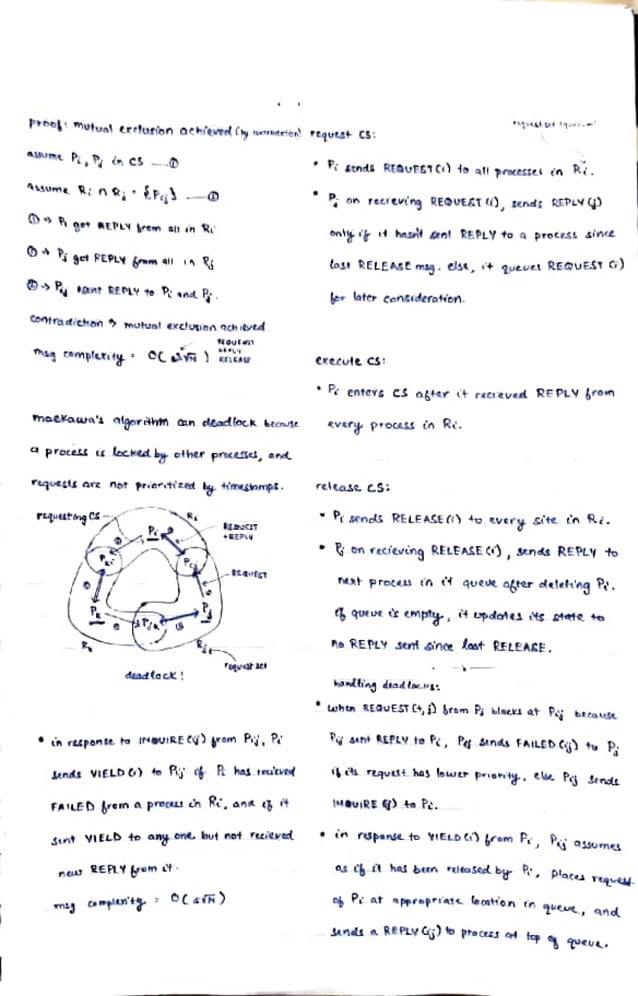 proof: mutual exclusion achieved (by contradiction)
assume Pi, Pj in CS —①
assume Ri ∩ Rj = {Pij} —②
①→ Pi got REPLY from all in Ri
①→ Pj got REPLY from all in Rj
②→ Pij sent REPLY to Pi and Pj.
contradiction → mutual exclusion achieved
REQUEST
REPLY
msg complexity = O(3√N) RELEASE
maekawa's algorithm can deadlock because
a process is locked by other processes, and
requests are not prioritized by timestamps.
requesting CS
Ri
Pi
REQUEST
+REPLY
REQUEST
Pk
Pj
Rk
Rj
request set
deadlock!
• in response to INQUIRE(ij) from Pij, Pi
sends YIELD(i) to Pij if Pi has recieved
FAILED from a process in Ri, and if it
sent YIELD to any one, but not recieved
new REPLY from it.
msg complexity = O(5√N)
request set
request CS:
• Pi sends REQUEST(i) to all processes in Ri.
• Pj on recieving REQUEST(i), sends REPLY(j)
only if it hasn't sent REPLY to a process since
last RELEASE msg. else, it queues REQUEST(i)
for later consideration.
execute CS:
• Pi enters CS after it recieved REPLY from
every process in Ri.
release CS:
• Pi sends RELEASE(i) to every site in Ri.
• Pj on recieving RELEASE(i), sends REPLY to
next process in it queue after deleting Pi.
if queue is empty, it updates its state to
no REPLY sent since last RELEASE.
handling deadlocks:
• when REQUEST(t,j) from Pj blocks at Pij because
Pij sent REPLY to Pi, Pij sends FAILED(ij) to Pj
if its request has lower priority, else Pij sends
INQUIRE(ij) to Pi.
• in response to YIELD(i) from Pi, Pij assumes
as if it has been released by Pi, places request
of Pi at appropriate location in queue, and
sends a REPLY(ij) to process at top of queue.